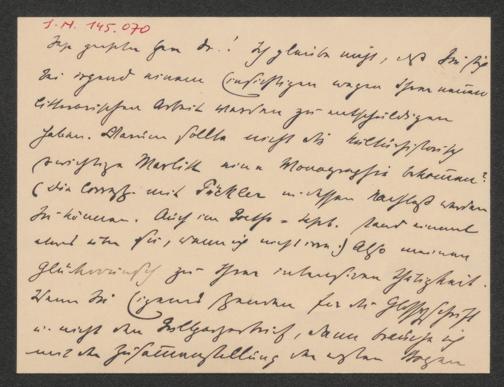 I.N. 145.070
Sehr geehrter Herr Dr.! Ich glaube nicht, daß Sie sich
bei irgend einem Einsichtigen wegen Ihrer neuen
litterarischen Arbeit werden zu entschuldigen
haben. Warum sollte nicht die kulturhistorisch
wichtige Marlitt eine Monographie bekommen?
(die corresp. mit Pückler in dessen Nachlaß werden
Sie kennen. Auch im Goethe- stand einmal
etwas über sie, wenn ich nicht irre.) Also meinen
Glückwunsch zu Ihrer intensiven Thätigkeit.
Wenn Sie Eigenes senden für die
u. nicht den, dann brauche ich
mit der Zusammenstellung der ersten Bogen